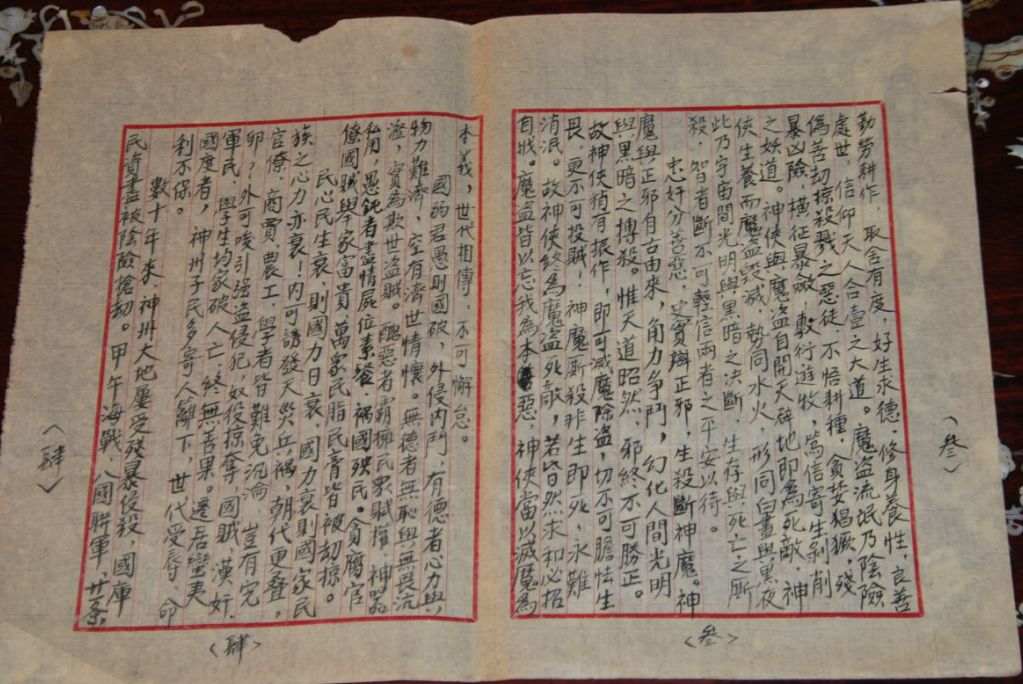 勤勞耕作，取舍有度，好生求德，修身養性，良善
處世，信仰天人合壹之大道。魔盜流氓乃陰險
偽善劫掠殺戮之惡徒，不悟耕種，貪婪猖獗，殘
暴凶險，橫征暴斂，敷衍遊牧，篤信寄生剝削
之妖道。神俠與魔盜自開天碎地即為死敵，神
俠生養而魔盜毀滅，勢同水火，形同白晝與黑夜
此乃宇宙間光明與黑暗之決斷，生存與死亡之斷
殺，智者斷不可輕信兩者之平安以待。
忠奸分善惡，史實辯正邪，生殺斷神魔。神
魔與正邪自古由來，角力争鬥，幻化人間光明
與黑暗之搏殺。惟天道昭然，邪終不可勝正。
故神俠稍有振作，即可滅魔除盜，切不可膽怯生
畏，更不可投賊！神魔斯殺非生即死，永難
消泯。故神俠終為魔盜死敵，若昏然未知必招
自戕。魔盜皆以忘我為本惡，神俠當以滅魔為
〈叁〉
〈叁〉
本義，世代相傳，不可懈怠。
國弱君愚則國破，外侵内鬥，有德者心力與
物力難濟，空有濟世情懷。無德者無恥與無畏沆
瀣，實為欺世盜賊。醜惡者霸擁民衆賦權，神器
私用，愚鈍者盡情屍位素餐，禍國殃民。貪腐官
僚國賊舉家富貴，萬衆民脂民膏皆被劫掠。
民心民生衰，則國力日衰，國力衰則國家民
族之心力亦衰！内可誘發天災兵禍，朝代更叠，
官僚、商賈、農工、學者皆難免沉淪，豈有完
卵？外可唆引强盜侵犯，奴役掠奪，國賊，漢奸，
軍民、學生均家破人亡，終無善果。遷居蠻夷
國度者，神州子民多寄人籬下，世代受辱，命
刹不保。
數十年來，神州大地屢受殘暴侵殺，國庫
民資盡被陰險搶劫。甲午海戰，八國聯軍，廿条
〈肆〉
〈肆〉